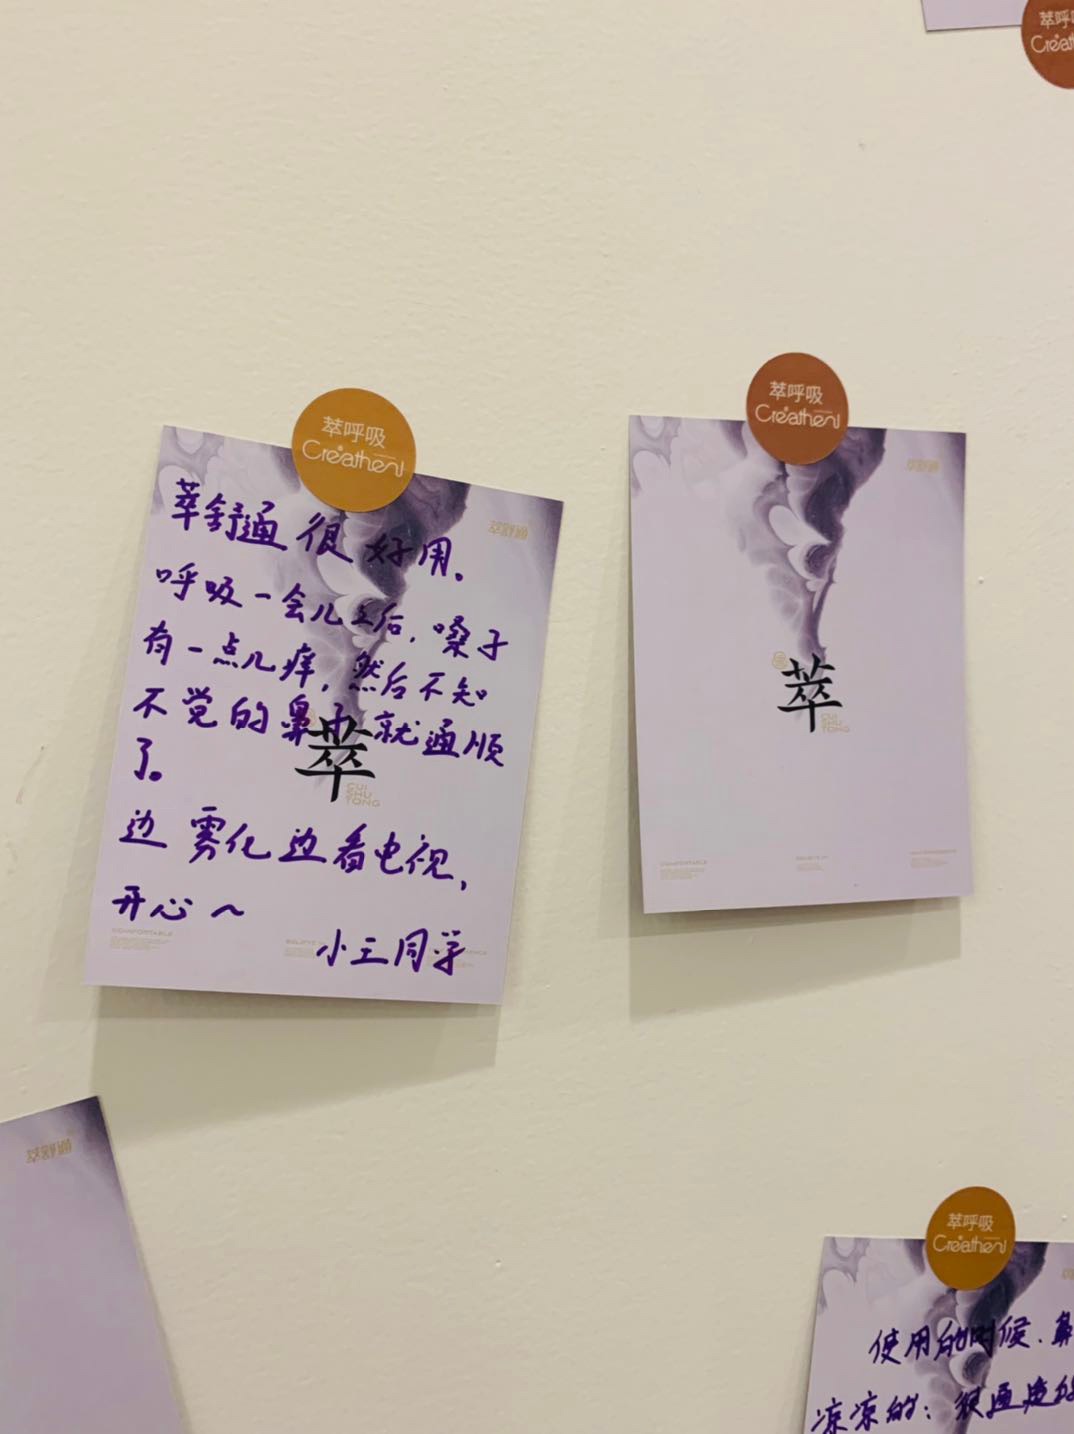 萃呼
萃呼吸
Creathen
萃舒通
萃舒通很好用。
呼吸一会儿之后,嗓子
有一点儿痒,然后不知
不觉的鼻子就通顺
了。
边雾化边看电视,
开心~
小王同学
萃
CUI
SHU
TONG
COMFORTABLE
萃呼吸
Creathen
萃舒通
萃
CUI
SHU
TONG
COMFORTABLE
萃舒通
萃呼吸
Creathen
使用的时候.鼻
凉凉的:很通透的